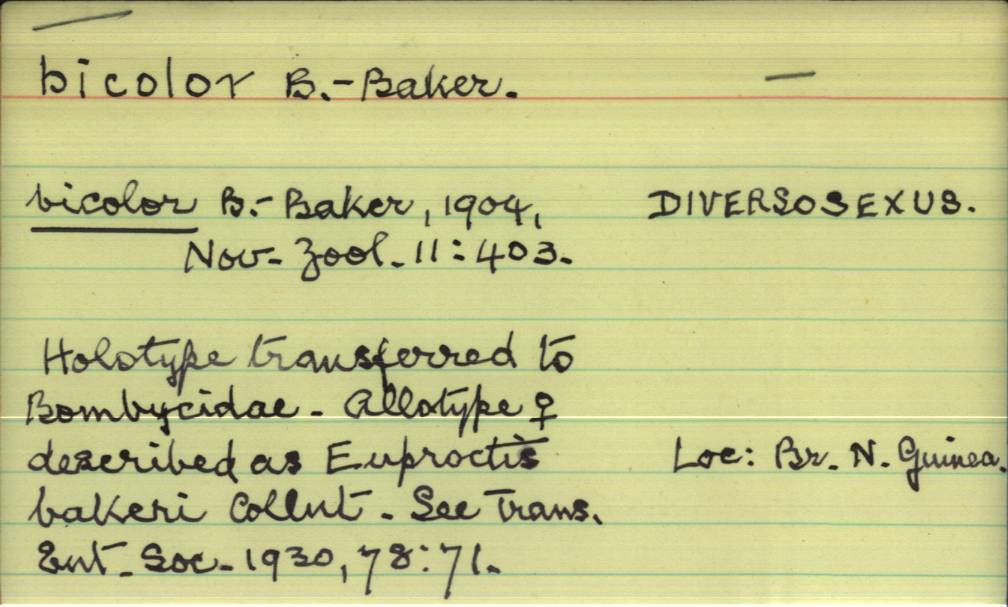 bicolor B.-Baker. —
bicolor B.-Baker, 1904, DIVERSOSEXUS.
Nov. Zool. 11:403.
Holotype transferred to
Bombycidae. Allotype ♀
described as Euproctis Loc: Br. N. Guinea.
bakeri Collnt. See Trans.
Ent. Soc. 1930, 78:71.